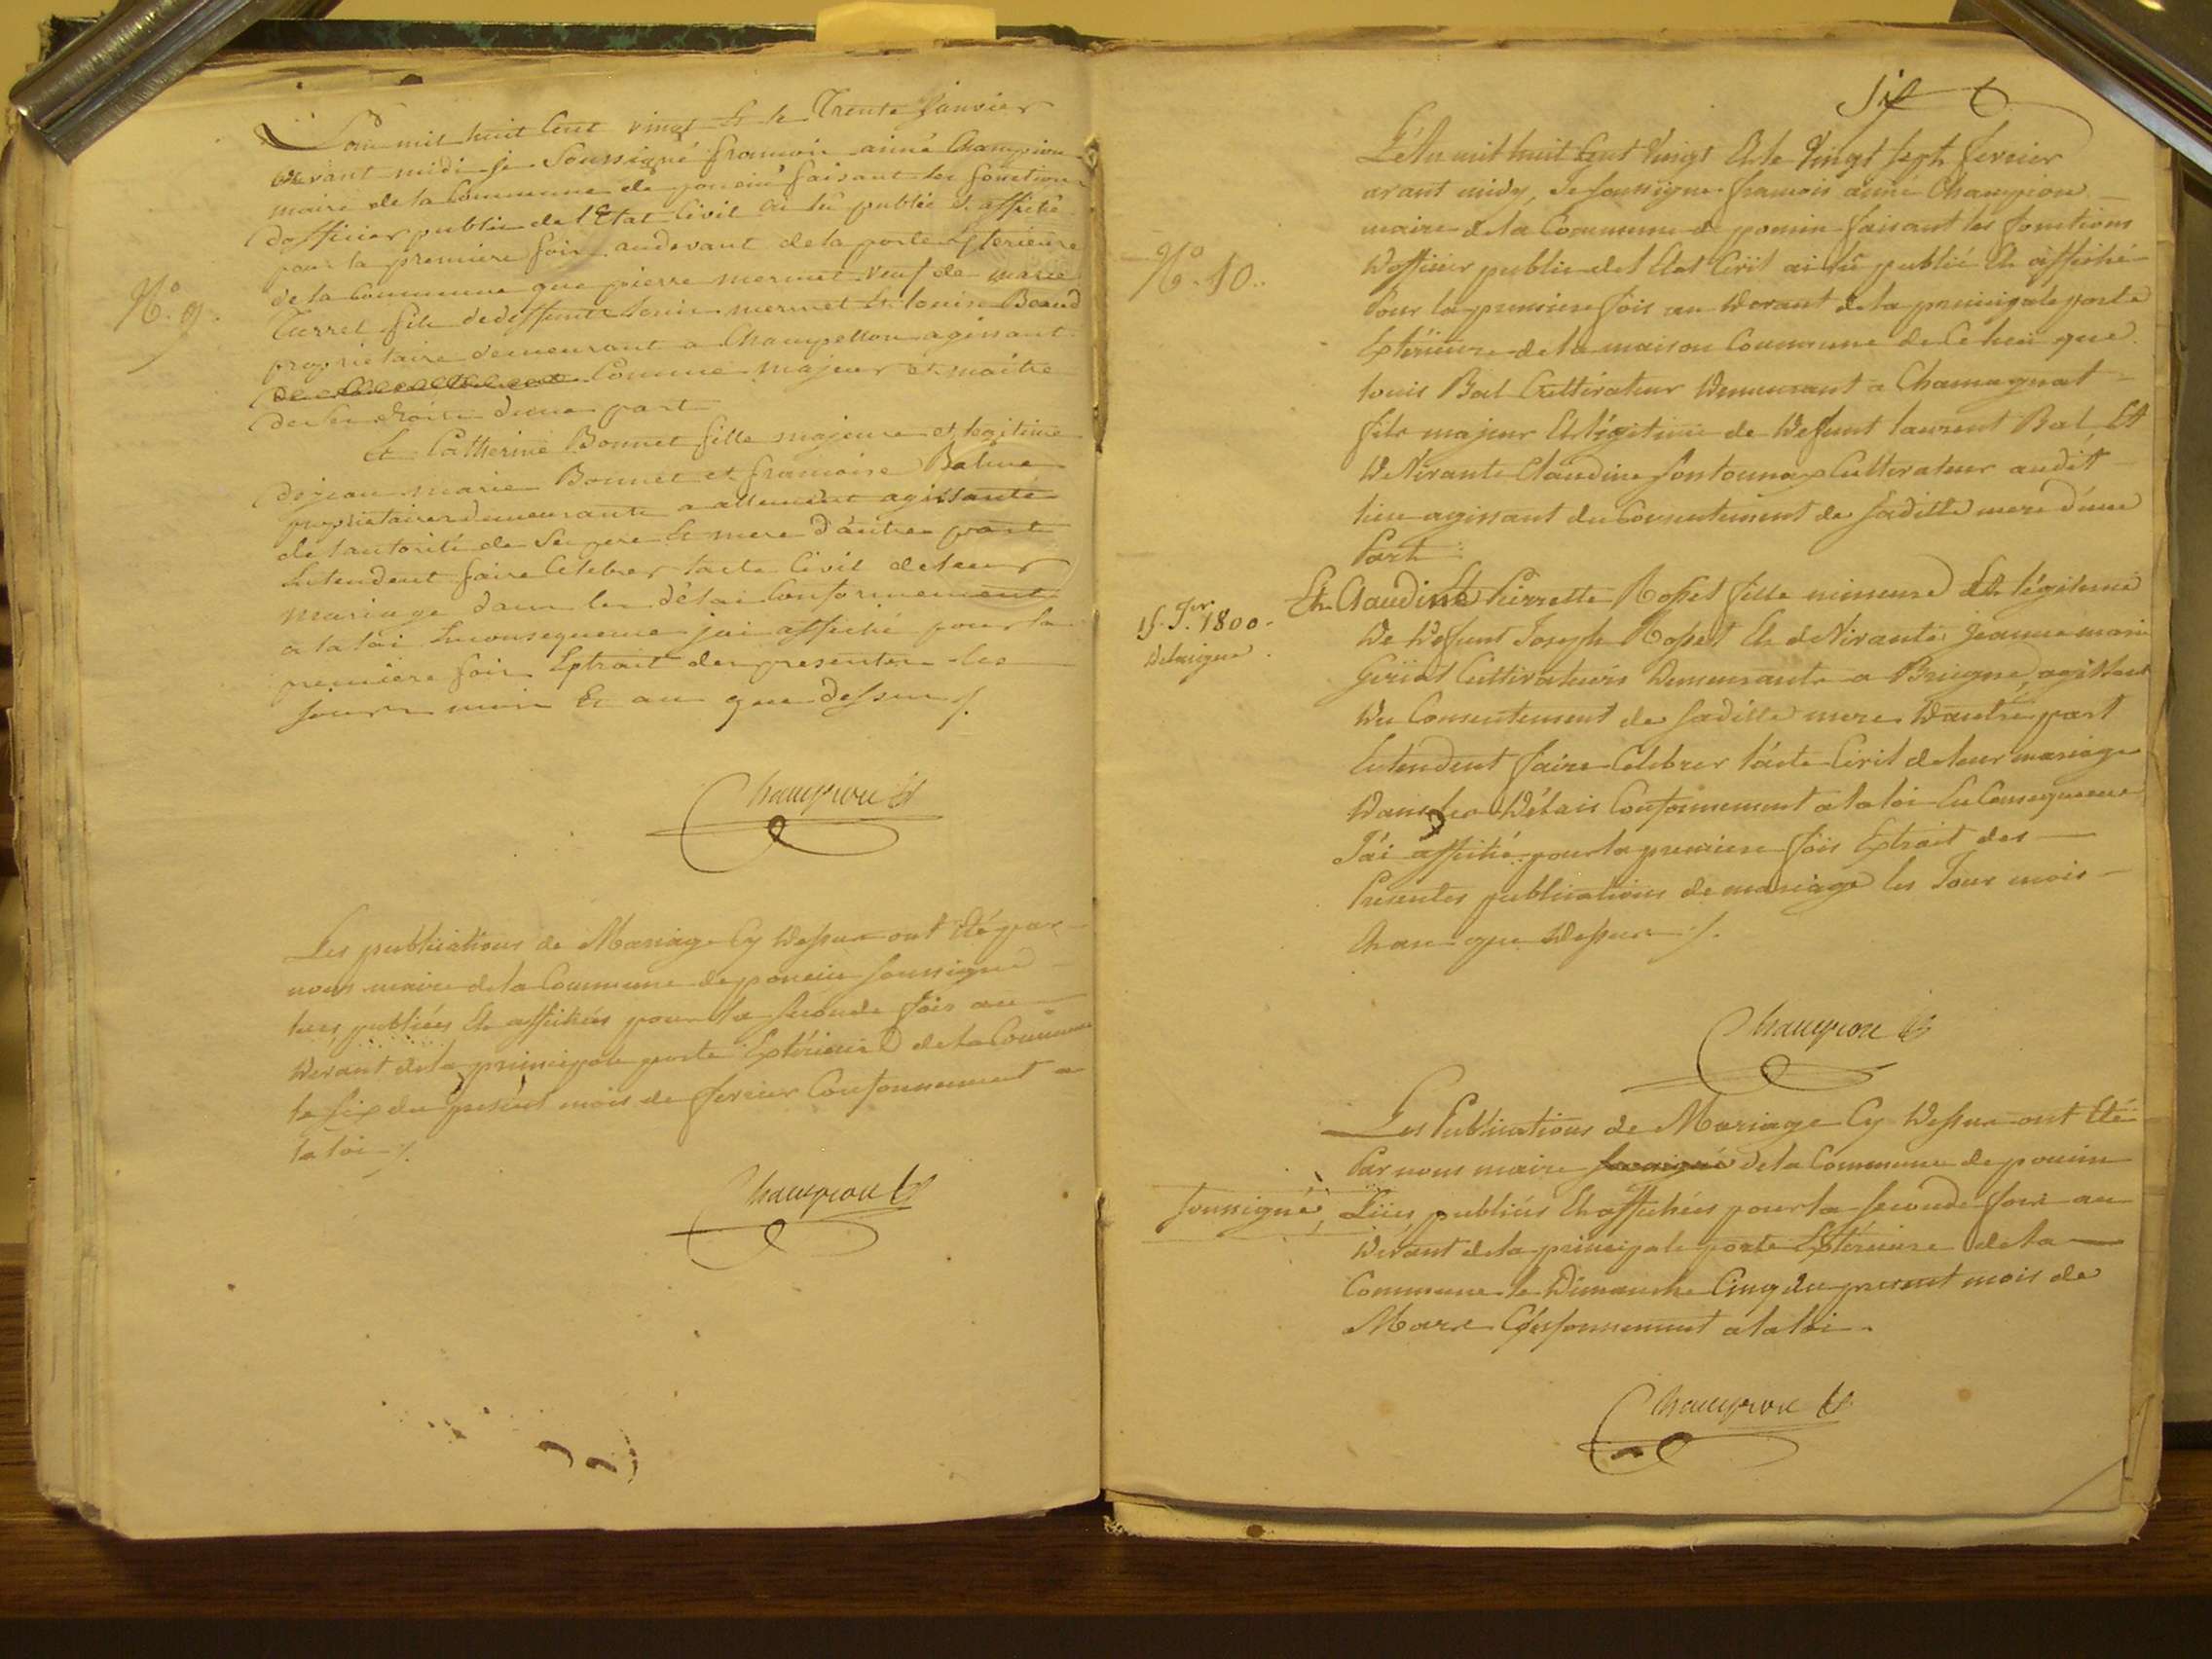 L'an mil huit Cent vingt Et le Trente Janvier
avant midi je Soussigné francois aimé Champion
maire de la Commune de poncin faisant les fonctions
dofficier public de l'Etat Civil ai lû publié et affiché
pour la premiere fois audevant de la porte Exterieure
de la Commune que pierre mermet veuf de marie
Turrel fils dedeffunts mermet Et louise Beaud
propriétaire demeurant a Champellon agissant
Comme majeur et maitre
de ses droits dune part
N.° 9.
Et Catherine Bonnet fille majeure et legitime
de jean marie Bonnet et francoise Balme
propriétaires demeurants a allement agissante
de lautorité de Ses pere Et mere d'autre part
Entendent faire Célébrer lacte Civil de leur
mariage dans les délai Conformement
a la loi Enconsequence jai affiché pour la
premiere fois Extrait des presentes les
jour mois Et an que dessus /.
Champion
Les publications de Mariage Cy dessus ont Eté par
nous maire de la Commune de poncin soussigné
lues, publiées Et affichées pour la seconde fois au
devant de la principale porte Extérieure de la Commune
le six du présent mois de fevrier Conformement a
la loi /.
Champion
Six
L'An mil huit Cent Vingt Et le Vingt sept fevrier
avant midy, Je soussigné francois aimé Champion
maire de la Commune de poncin faisant les fonctions
d'officier public de l'Etat Civil ai lû publié Et affiché
Pour la premiere fois au devant de la principale porte
Extérieure de la maison Commune de Ce lieu que
N.° 10.
louis Bal Cultivateur demeurant a Chamagnat
fils majeur Et légitime de defunt laurent Bal, Et
de Vivante Claudine fontounax Cultivateur audit
lieu agissant du Consentement de saditte mere d'une
Part
Et Claudine Pierrette Rosset fille mineure Et légitime
15. J.er 1800.
de defunt Joseph Rosset Et de Vivante Jeanne marie
Cultivateurs demeurants a Breigne, agissant
du Consentement de sadite mere d'autre part
Entendent faire Célébrer l'acte Civil de leur mariage
dans les délais Conformement a la loi En Consequence
J'ai affiché pour la premiere fois Extrait des
Presentes publications de mariage les Jour mois
Et an que dessus /.
Champion
Les Publications de Mariage Cy dessus ont Eté
Par nous maire soussigné de la Commune de poncin
soussigné, Lües, publiées Et affichées pour la seconde fois au
devant de la principale porte Extérieure de la
Commune le Dimanche Cinq du present mois de
Mars Conformement a la loi.
Champion